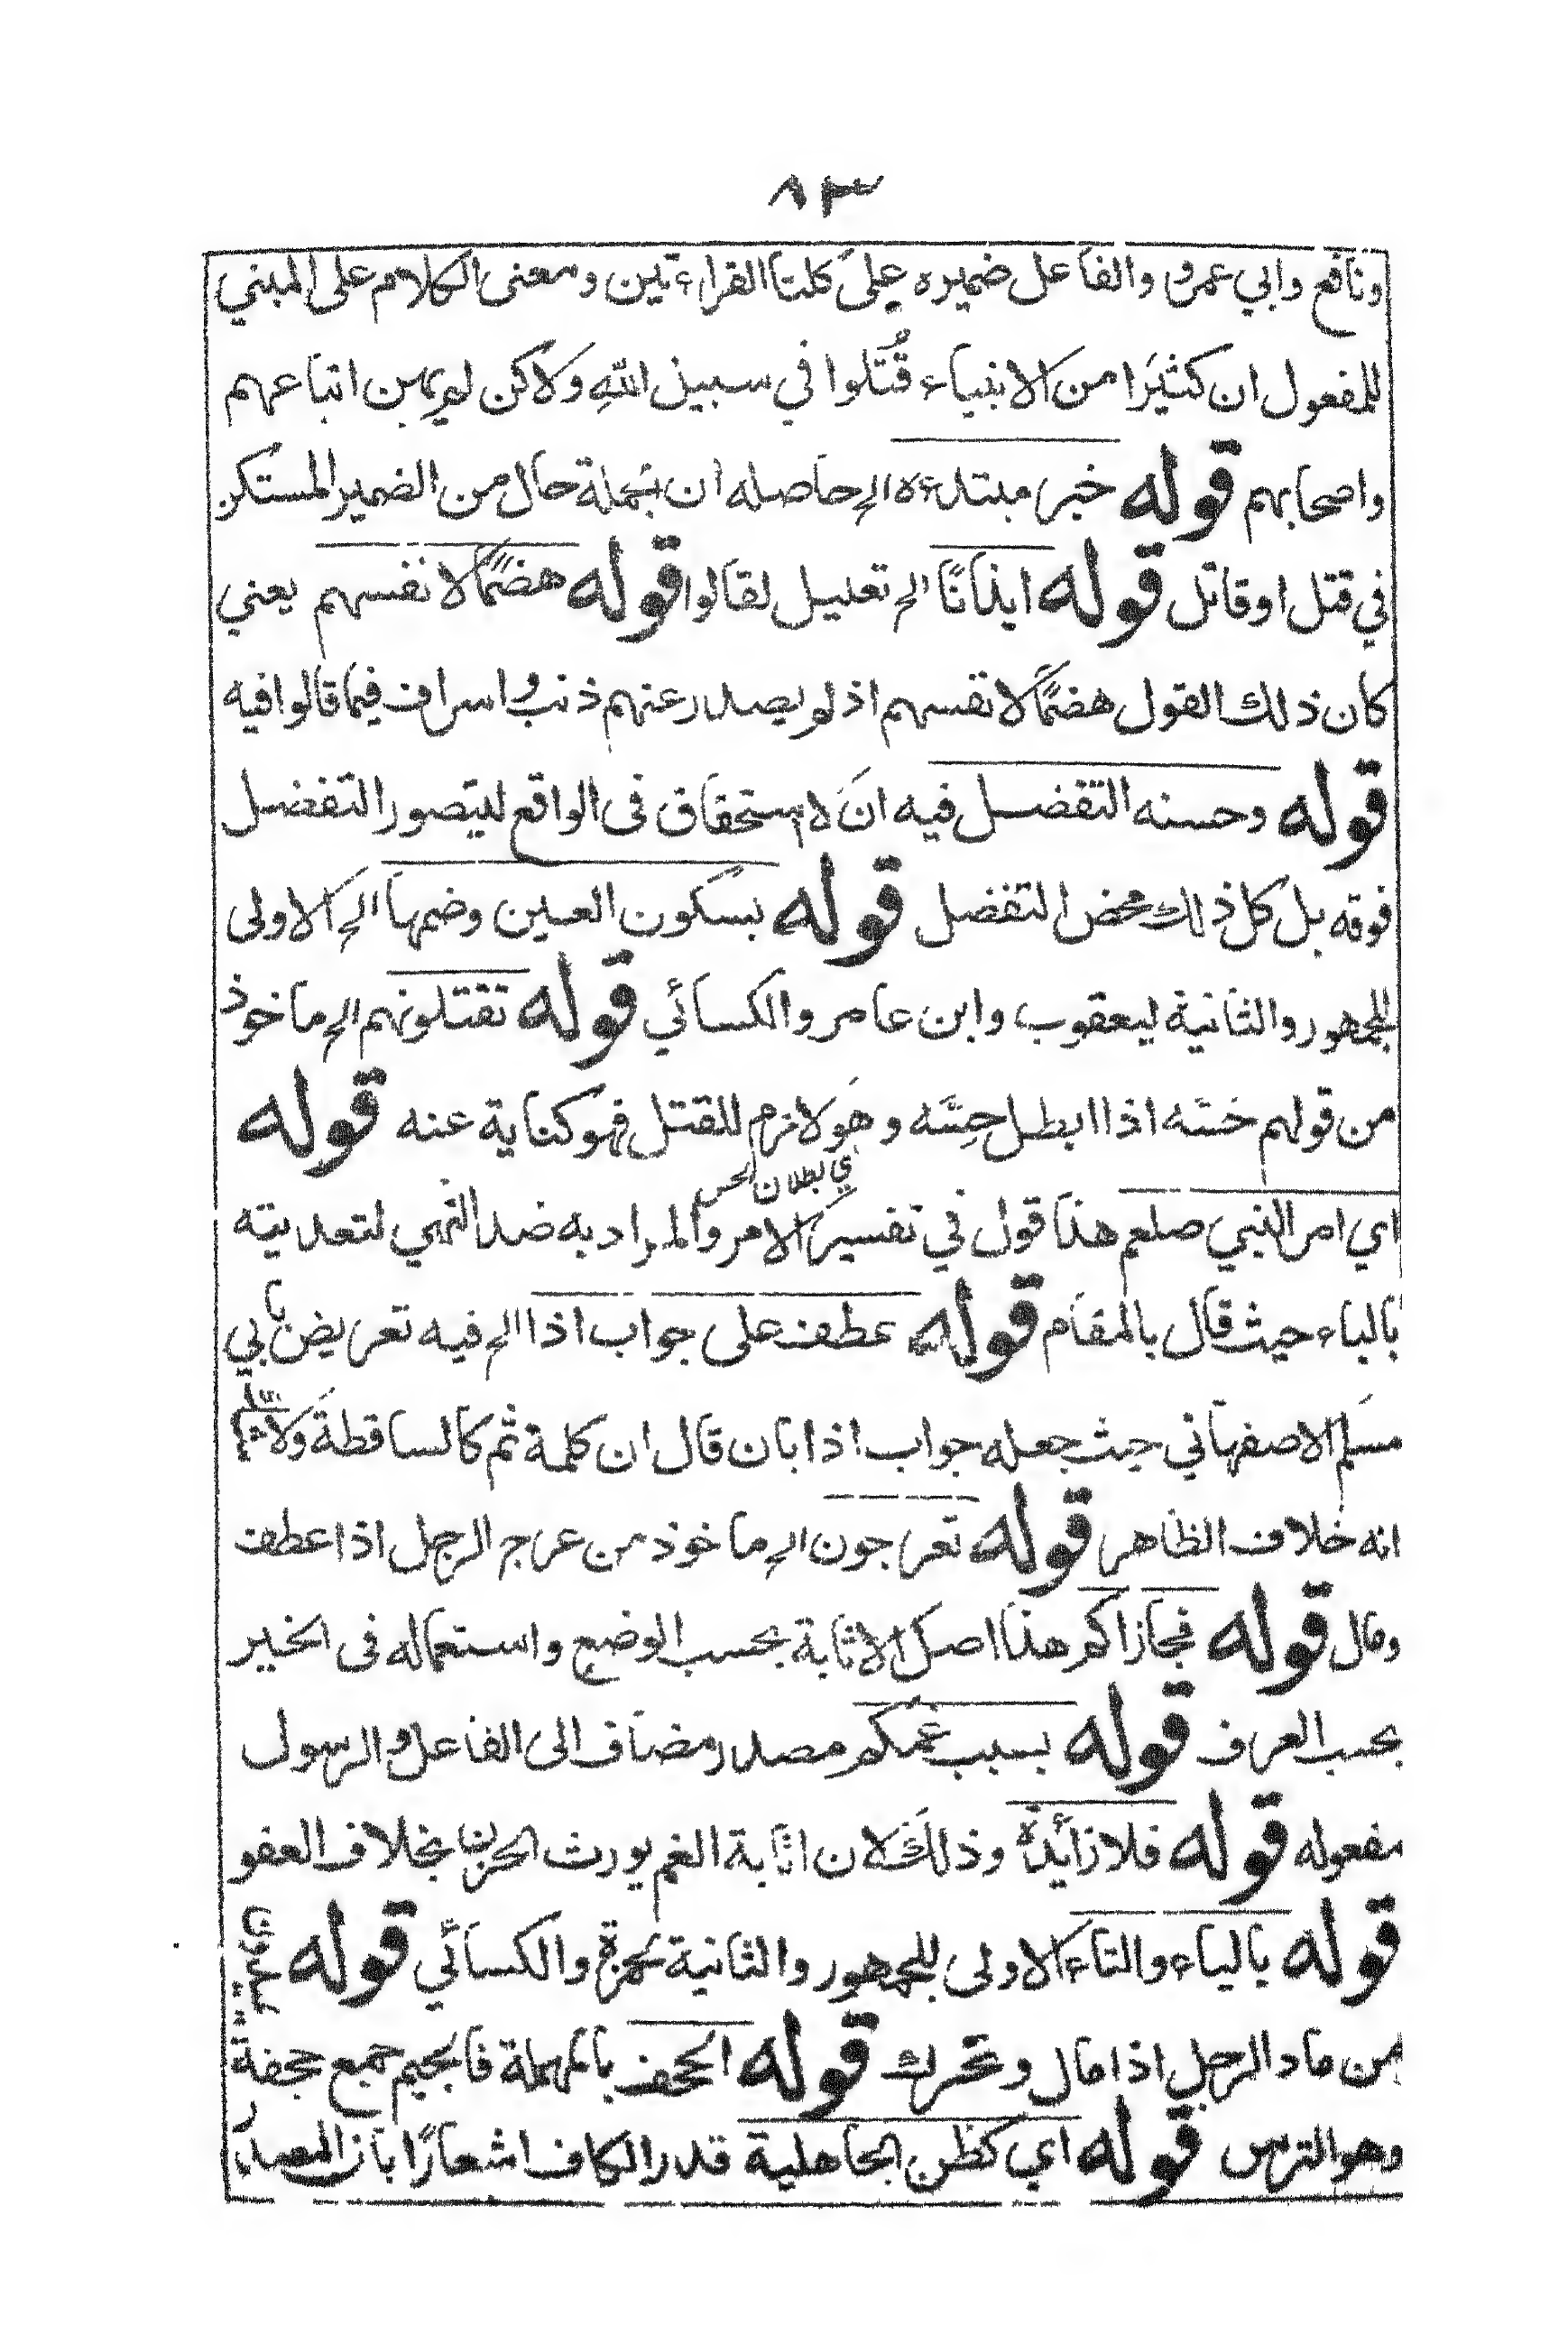 ٨٣
ونافع وابي عمرو والفاعل ضميره على كلتا القراءتين ومعنى الكلام على المبني
للمفعول ان كثيرا من الانبياء قُتلوا في سبيل الله ولاكن لم يهن اتباعهم
واصحابهم قوله خبر مبتدءه الخ حاصله ان جملة حال من الضمير المستكن
في قتل او قاتل قوله ايذانًا الخ تعليل لقالوا قوله هضمًا لانفسهم يعني
كان ذلك القول هضمًا لانفسهم اذ لم يصدر عنهم ذنب واسراف فيما قالوا فيه
قوله وحسنه التفضل فيه ان لا استحقاق في الواقع ليتصور التفضل
فوقه بل كل ذلك محض التفضل قوله بسكون العين وضمها الخ الاولى
للجمهور والثانية ليعقوب وابن عامر والكسائي قوله تقتلونهم الخ ماخوذ
من قولهم حسّه اذا ابطل حِسَّه وهو لازم للقتل فهو كناية عنه قوله
اي بطلان الحس
اي امر النبي صلعم هذا قول في تفسير الامر والمراد به ضد النهي لتعديته
بالباء حيث قال بالمقام قوله عطف على جواب اذا الخ فيه تعريض بابي
مسلم الاصفهاني حيث جعله جواب اذا بان قال ان كلمة ثم كالساقطة ولا
انه خلاف الظاهر قوله تعرجون الخ ماخوذ من عرج الرجل اذا عطف
ومال قوله فجازاكم هذا اصل الاثابة بحسب الوضع واستعماله في الخير
بحسب العرف قوله بسبب غمكم مصدر مضاف الى الفاعل والرسول
مفعوله قوله فلا زائدة وذلك لان اثابة الغم يورث الحزن بخلاف العفو
قوله بالياء والتاء الاولى للجمهور والثانية لحمزة والكسائي قوله
من ماد الرجل اذا مال وتحرك قوله الحجف بالمهملة فالجيم جمع حجفة
وهو الترس قوله اي كظن الجاهلية قدر الكاف اشعارًا بان المصدر